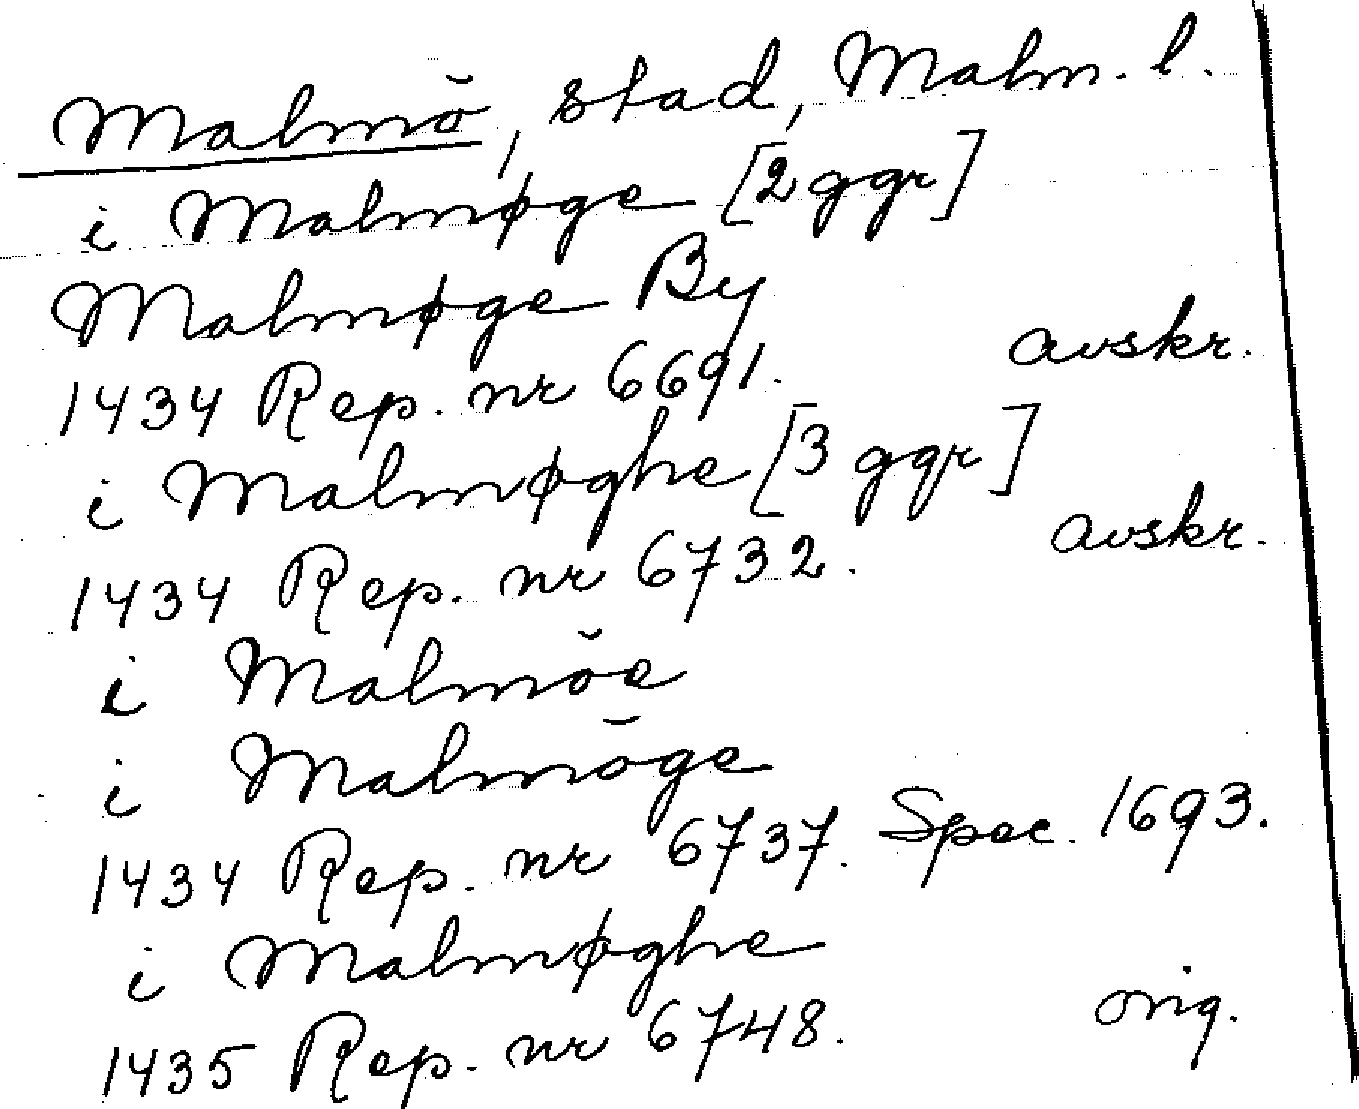 Malmö, stad, Malm. l.
i Malmøge [2 ggr]
Malmøge By
1434 Rep. nr 6691. avskr.
i Malmøghe [3 ggr]
1434 Rep. nr 6732. avskr.
i Malmöe
i Malmöge
1434 Rep. nr 6737. Spec. 1693.
i Malmøghe
1435 Rep. nr 6748. orig.